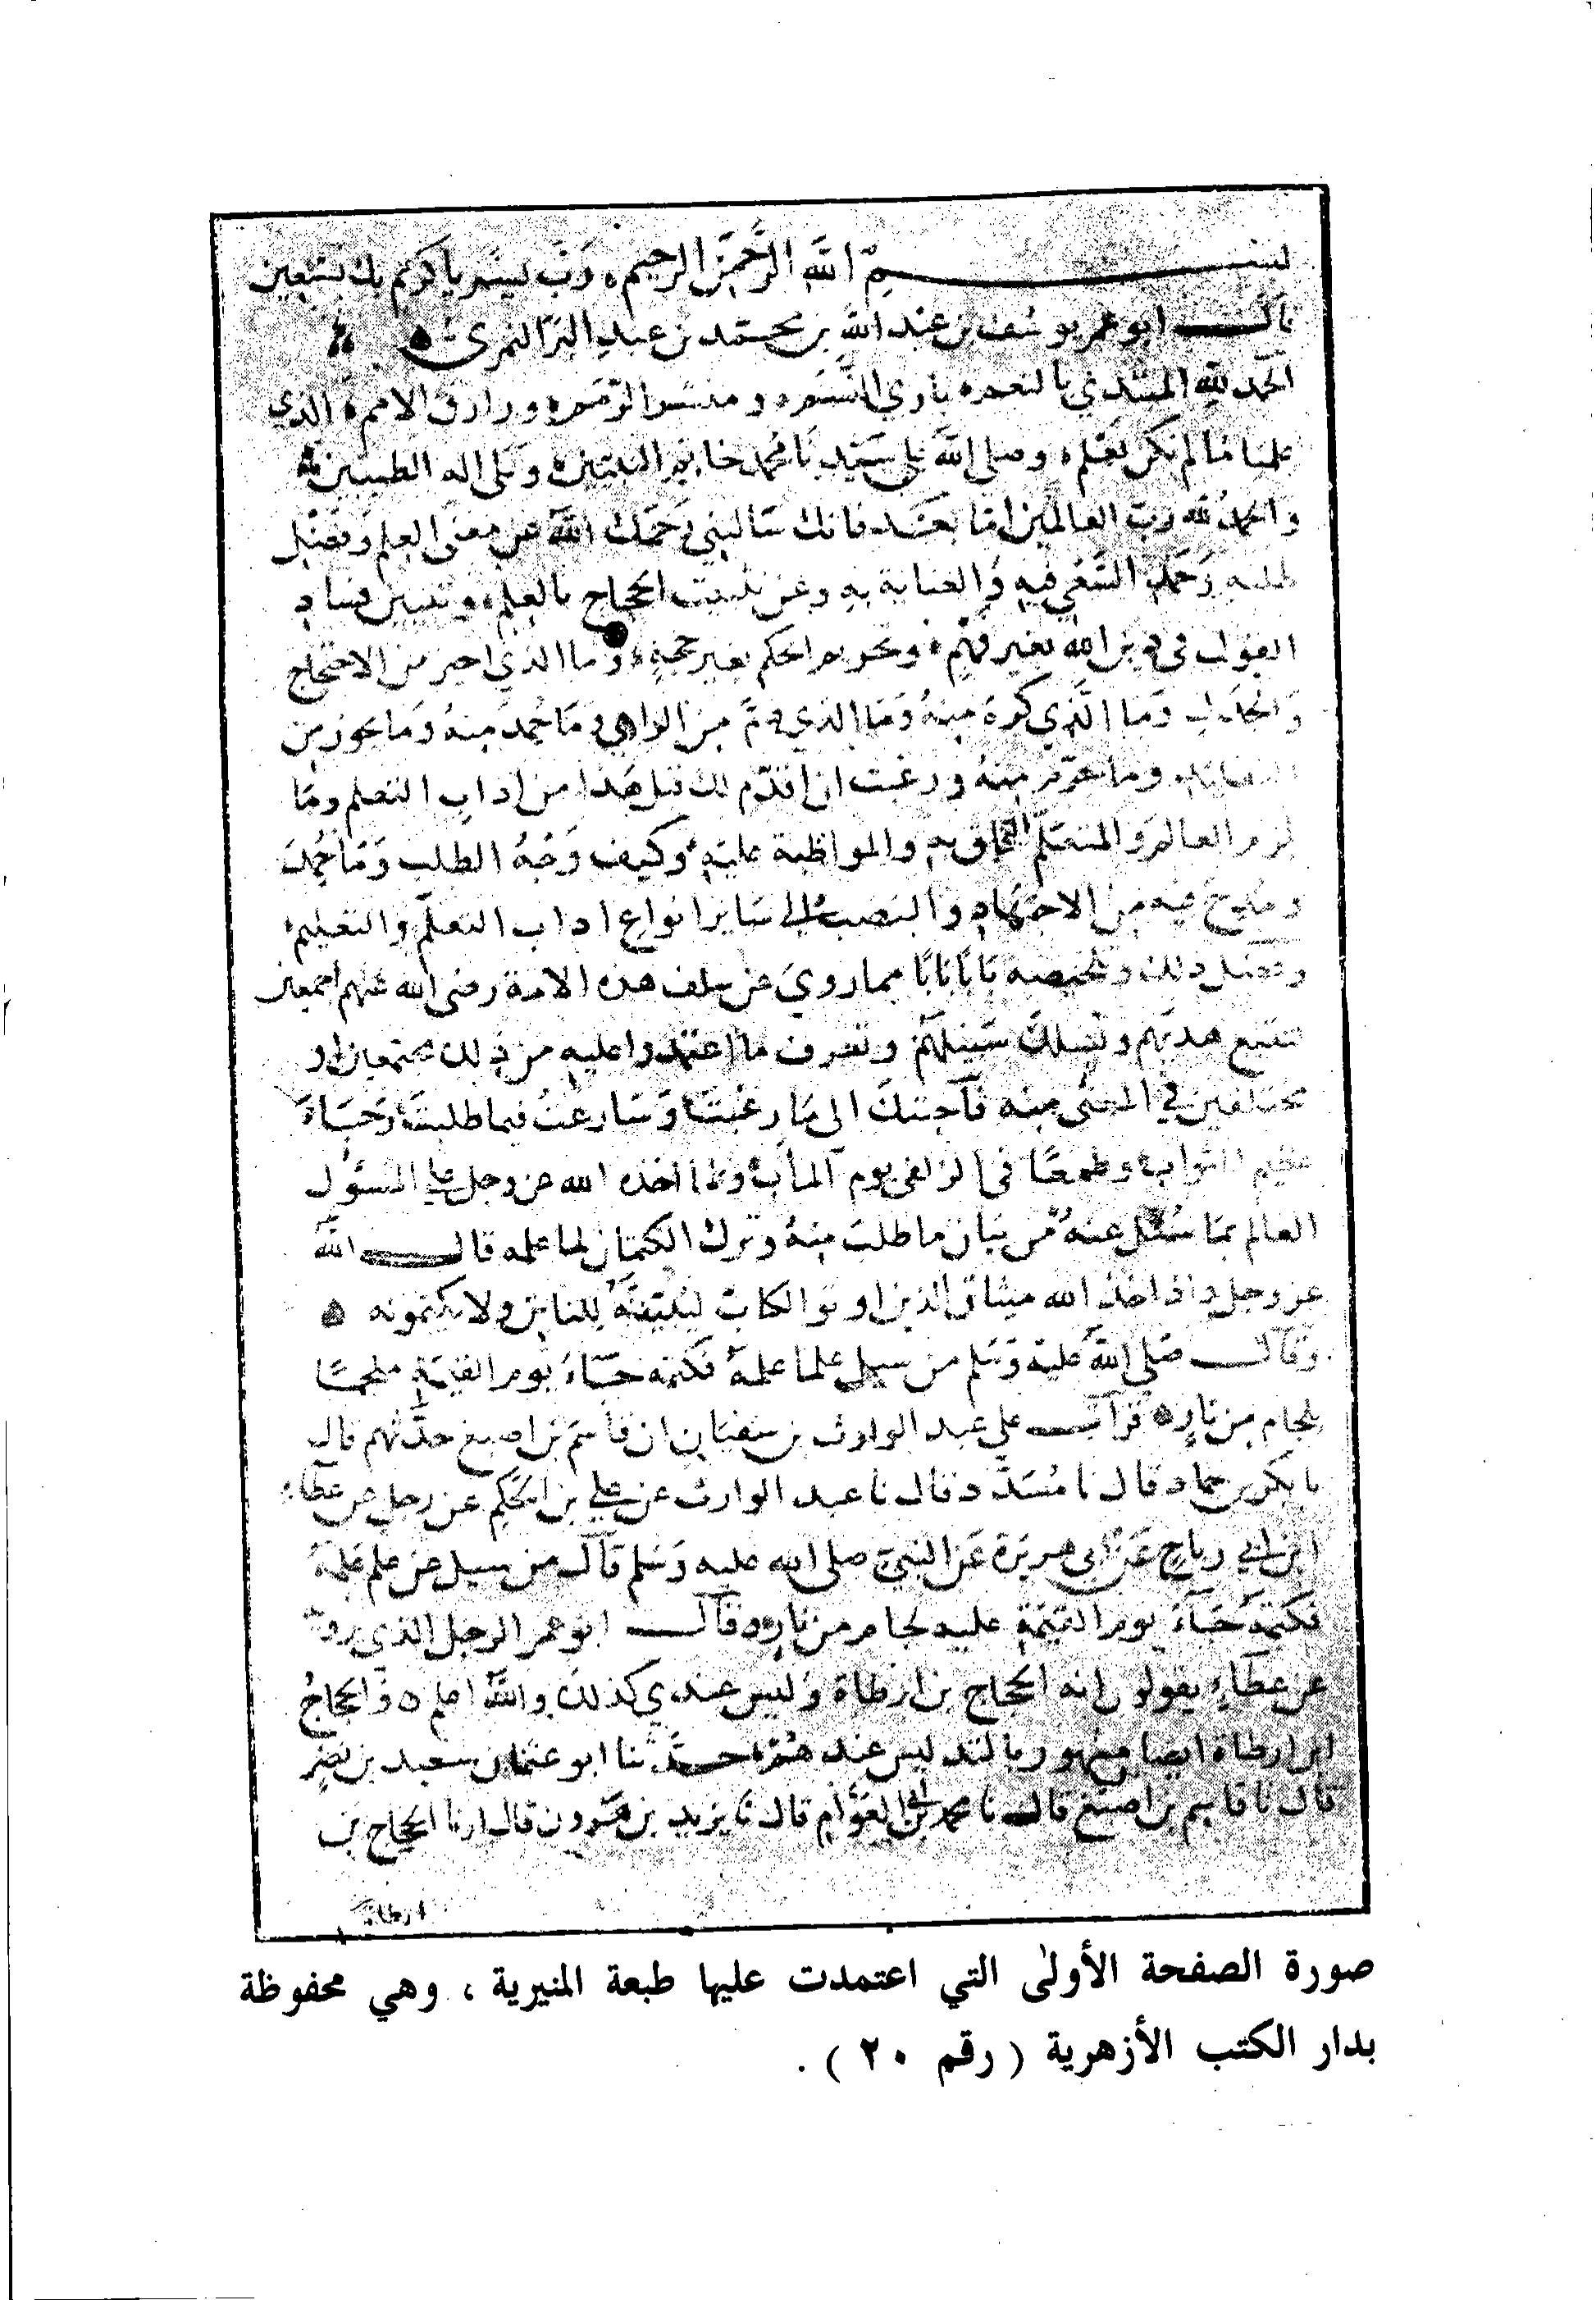 بسم الله الرحمن الرحيم رب يسر يا كريم بك نستعين
قال ابو عمر يوسف بن عبد الله بن محمد بن عبد البر النمري
الحمد لله المبتدي بالنعم باري النسم ومنشر الرمم ورازق الامم الذي
علمنا ما لم نكن نعلم وصلى الله على سيدنا محمد خاتم النبيين وعلى اله الطيبين
والحمد لله رب العالمين اما بعد فانك سالتني رحمك الله عن معنى العلم وفضل
طلبه وحمد السعي فيه والعناية به وعن تثبيت الحجاج بالعلم وتبيين فساد
القول في دين الله بغير فهم وتحريم الحكم بغير حجة وما الذي اجيز من الاحتجاج
والجدل وما الذي كره منه وما الذي ذم من الراي وما حمد منه وما يجوز من
التقليد وما حرم منه ورغبت ان اقدم لك قبل هذا من اداب التعلم وما
يلزم العالم والمتعلم التخلق به والمواظبة عليه وكيف وجه الطلب وما حمد
ومدح فيه من الاجتهاد والنصب الى ساير انواع اداب التعلم والتعليم
وفضل ذلك وتلخيصه بابا بابا مما روي عن سلف هذه الامة رضي الله عنهم اجمعين
لتتبع هديهم وتسلك سبيلهم وتعرف ما اعتمدوا عليه من ذلك مجتمعين او
مختلفين في المعنى منه فاجبتك الى ما رغبت وسارعت فيما طلبت رجاء
عظيم الثواب وطمعا في الزلفى يوم المآب ولما اخذه الله عز وجل على المسؤل
العالم بما سئل عنه من بيان ما طلب منه وترك الكتمان لما علمه قال الله
عز وجل واذ اخذ الله ميثاق الذين اوتوا الكتاب ليبيننه للناس ولا يكتمونه
وقال صلى الله عليه وسلم من سيل علما علمه فكتمه جاء يوم القيمة ملجما
بلجام من نار قرات على عبد الوارث بن سفيان ان قاسم بن اصبغ حدثهم قال
نا بكر بن حماد قال نا مسدد قال نا عبد الوارث عن علي بن الحكم عن رجل عن عطاء
ابن ابي رباح عن ابي هريرة عن النبي صلى الله عليه وسلم قال من سيل عن علم علمه
فكتمه جاء يوم القيمة عليه لجام من نار قال ابو عمر الرجل الذي يرويه
عن عطاء يقولون انه الحجاج بن ارطاة وليس عندي كذلك والله اعلم والحجاج
ابن ارطاة ايضا مشهور بالتدليس عندهم حدثنا ابو عثمان سعيد بن نصر
قال نا قاسم بن اصبغ قال نا محمد بن ابي العوام قال نا يزيد بن هرون قال انا الحجاج بن
ارطاة
صورة الصفحة الأولى التي اعتمدت عليها طبعة المنيرية ، وهي محفوظة
بدار الكتب الأزهرية ( رقم ٢٠ ) .